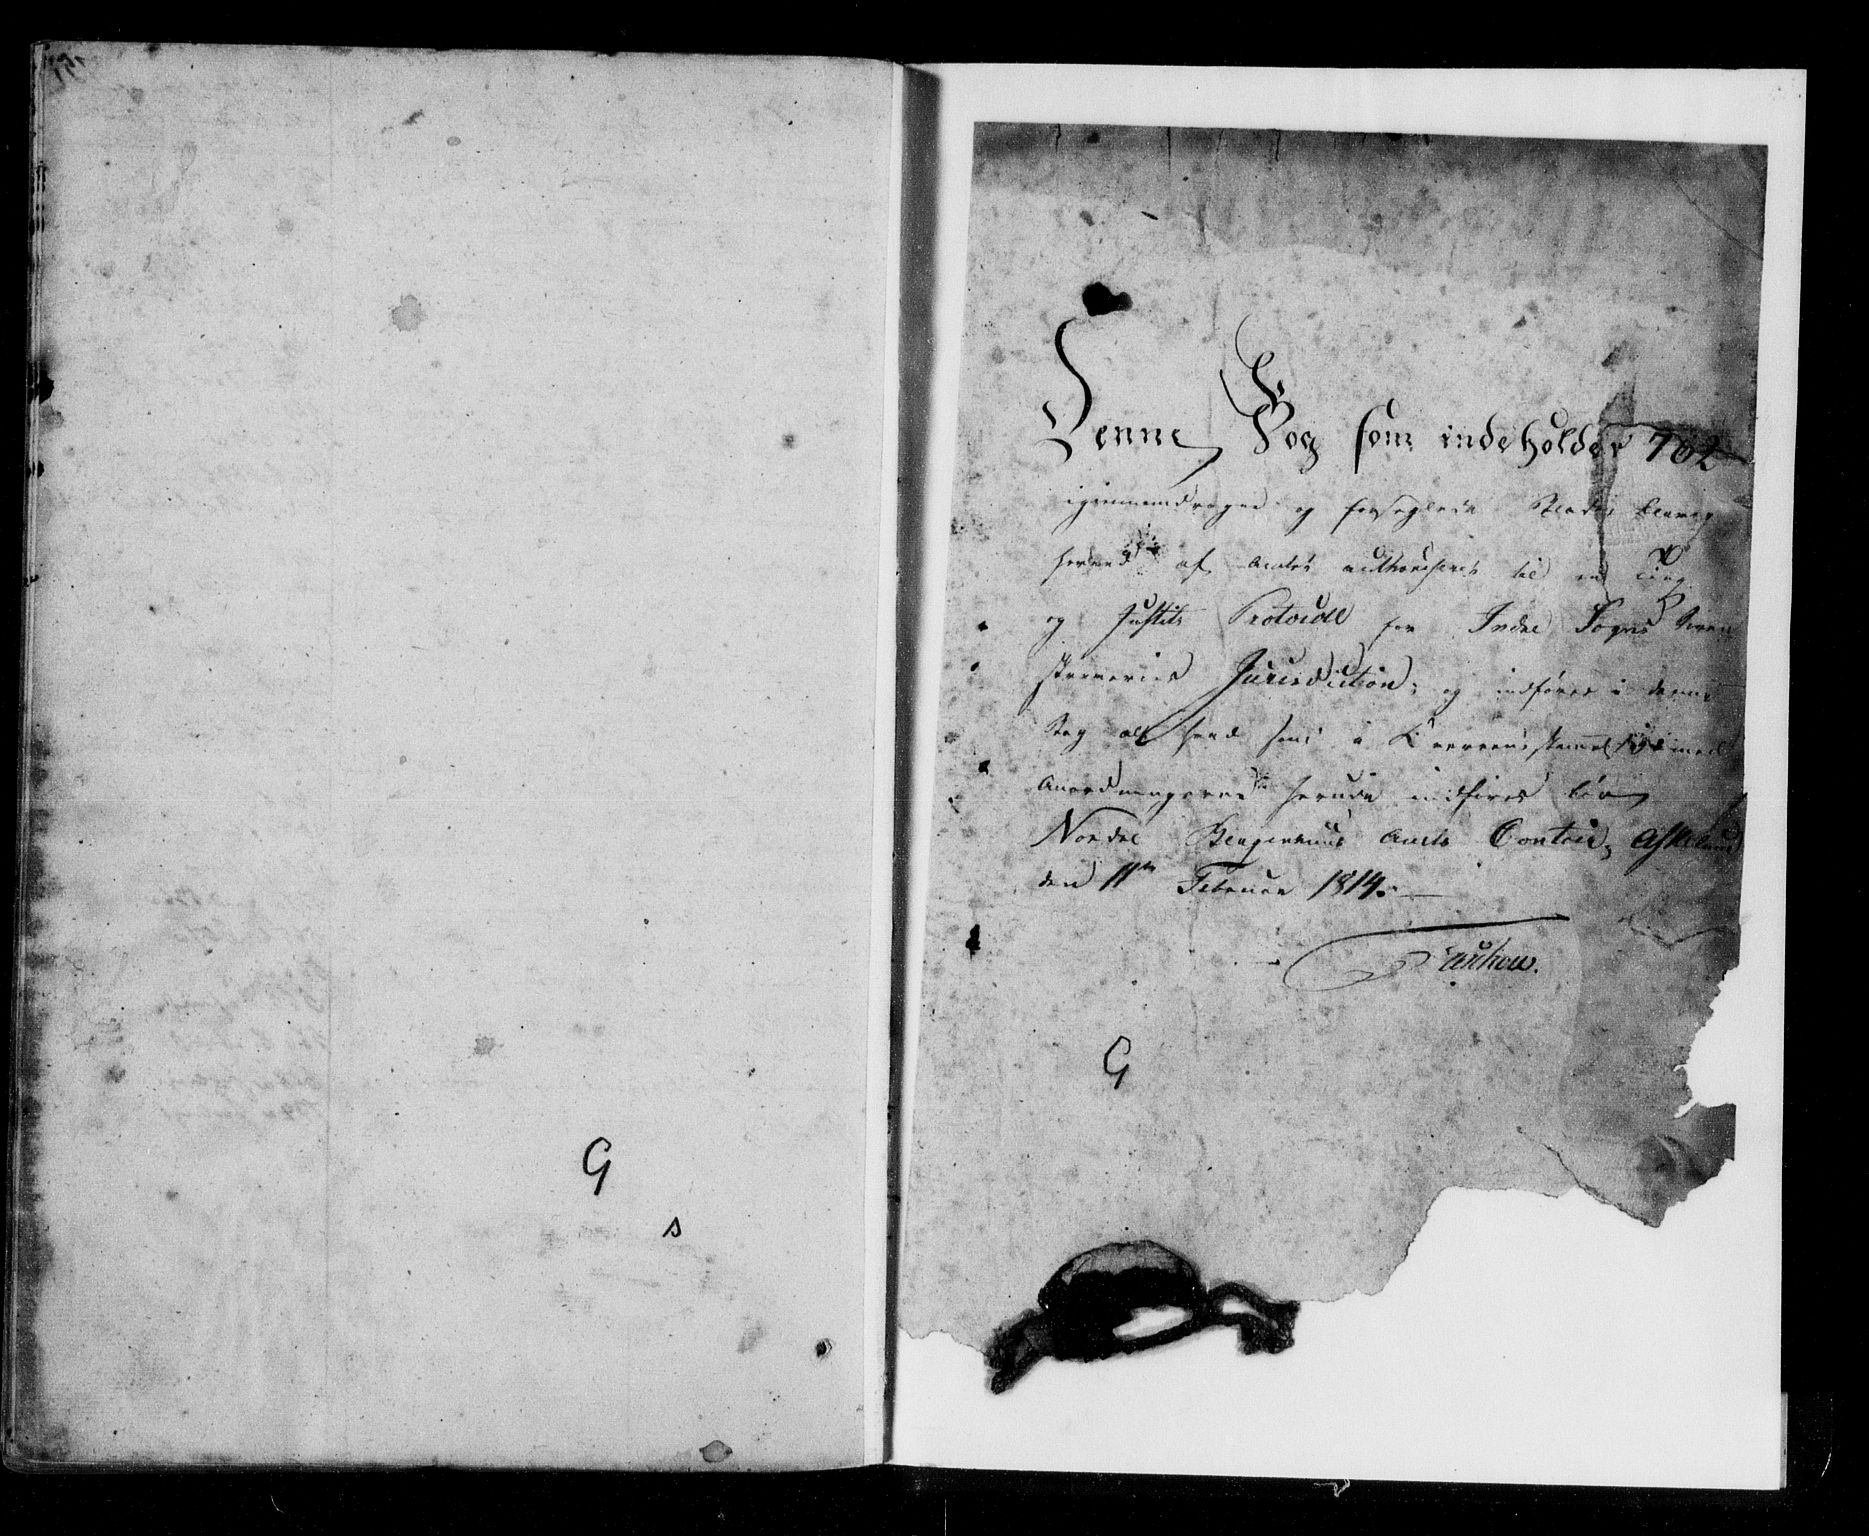 G
s
Denne Bog som indeholder 702
igiennemdragne og forseglede Blade bliver
herved af Amtet authoriseret til en Ting
og Justits Protocoll for Indre Sogns Soren
skriveries Jurisdiction, og indføres i denne
Bog alt hvad som i Overeensstemmelse med
Anordningerne herudi indføres bør
Nordre Bergenhuus Amts Contoir, Askelund
den 11te Februar 1814.
G